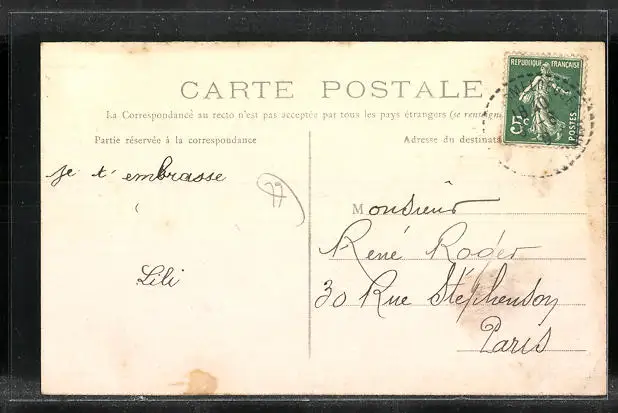 CARTE POSTALE
RÉPUBLIQUE FRANÇAISE
5c
POSTES
La Correspondance au recto n'est pas acceptée par tous les pays étrangers (se renseign
Partie réservée à la correspondance
Adresse du destinat
je t'embrasse
77
Lili
Monsieur
René Roger
30 Rue Stéphenson
Paris